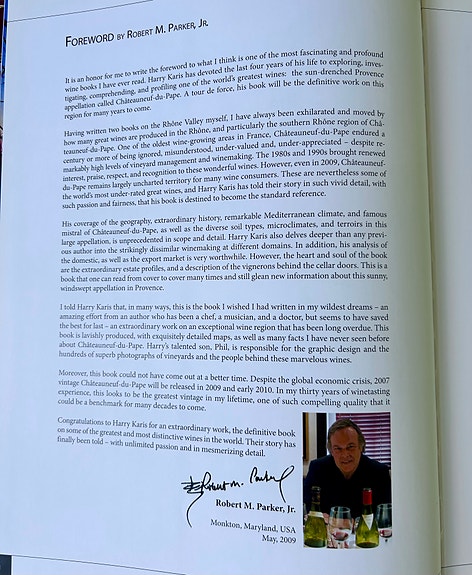 FOREWORD BY ROBERT M. PARKER, JR.
It is an honor for me to write the foreword to what I think is one of the most fascinating and profound
wine books I have ever read. Harry Karis has devoted the last four years of his life to exploring, inves-
tigating, comprehending, and profiling one of the world's greatest wines: the sun-drenched Provence
appellation called Châteauneuf-du-Pape. A tour de force, his book will be the definitive work on this
region for many years to come.
Having written two books on the Rhône Valley myself, I have always been exhilarated and moved by
how many great wines are produced in the Rhône, and particularly the southern Rhône region of Châ-
teauneuf-du-Pape. One of the oldest wine-growing areas in France, Châteauneuf-du-Pape endured a
century or more of being ignored, misunderstood, under-valued and, under-appreciated – despite re-
markably high levels of vineyard management and winemaking. The 1980s and 1990s brought renewed
interest, praise, respect, and recognition to these wonderful wines. However, even in 2009, Châteauneuf-
du-Pape remains largely uncharted territory for many wine consumers. These are nevertheless some of
the world's most under-rated great wines, and Harry Karis has told their story in such vivid detail, with
such passion and fairness, that his book is destined to become the standard reference.
His coverage of the geography, extraordinary history, remarkable Mediterranean climate, and famous
mistral of Châteauneuf-du-Pape, as well as the diverse soil types, microclimates, and terroirs in this
large appellation, is unprecedented in scope and detail. Harry Karis also delves deeper than any previ-
ous author into the strikingly dissimilar winemaking at different domains. In addition, his analysis of
the domestic, as well as the export market is very worthwhile. However, the heart and soul of the book
are the extraordinary estate profiles, and a description of the vignerons behind the cellar doors. This is a
book that one can read from cover to cover many times and still glean new information about this sunny,
windswept appellation in Provence.
I told Harry Karis that, in many ways, this is the book I wished I had written in my wildest dreams – an
amazing effort from an author who has been a chef, a musician, and a doctor, but seems to have saved
the best for last – an extraordinary work on an exceptional wine region that has been long overdue. This
book is lavishly produced, with exquisitely detailed maps, as well as many facts I have never seen before
about Châteauneuf-du-Pape. Harry's talented son, Phil, is responsible for the graphic design and the
hundreds of superb photographs of vineyards and the people behind these marvelous wines.
Moreover, this book could not have come out at a better time. Despite the global economic crisis, 2007
vintage Châteauneuf-du-Pape will be released in 2009 and early 2010. In my thirty years of winetasting
experience, this looks to be the greatest vintage in my lifetime, one of such compelling quality that it
could be a benchmark for many decades to come.
Congratulations to Harry Karis for an extraordinary work, the definitive book
on some of the greatest and most distinctive wines in the world. Their story has
finally been told – with unlimited passion and in mesmerizing detail.
Robert M. Parker
Robert M. Parker, Jr.
Monkton, Maryland, USA
May, 2009